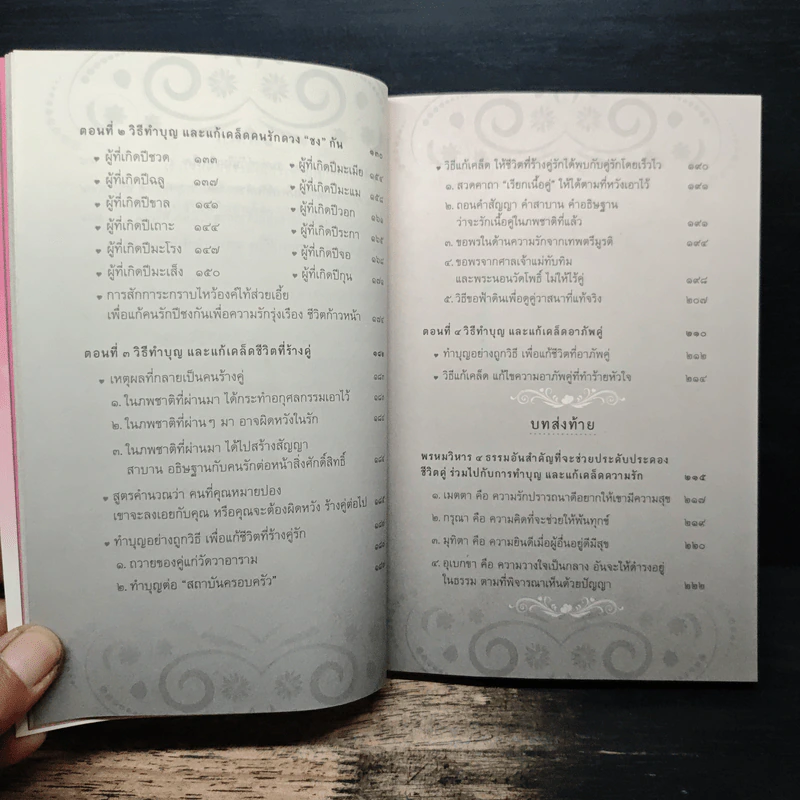 ตอนที่ ๒ วิธีทำบุญ และแก้เคล็ดคนรักดวง "ชง" กัน ๑๓๐
♥ ผู้ที่เกิดปีชวด ๑๓๓ ♥ ผู้ที่เกิดปีมะเมีย ๑๕๔
♥ ผู้ที่เกิดปีฉลู ๑๓๗ ♥ ผู้ที่เกิดปีมะแม
♥ ผู้ที่เกิดปีขาล ๑๔๑ ♥ ผู้ที่เกิดปีวอก
♥ ผู้ที่เกิดปีเถาะ ๑๔๔ ♥ ผู้ที่เกิดปีระกา ๑๖๕
♥ ผู้ที่เกิดปีมะโรง ๑๔๗ ♥ ผู้ที่เกิดปีจอ
♥ ผู้ที่เกิดปีมะเส็ง ๑๕๐ ♥ ผู้ที่เกิดปีกุน
♥ การสักการะกราบไหว้องค์ไท้ส่วยเอี้ย
เพื่อแก้คนรักปีชงกันเพื่อความรักรุ่งเรือง ชีวิตก้าวหน้า
ตอนที่ ๓ วิธีทำบุญ และแก้เคล็ดชีวิตที่ร้างคู่
♥ เหตุผลที่กลายเป็นคนร้างคู่
๑. ในภพชาติที่ผ่านมา ได้กระทำอกุศลกรรมเอาไว้
๒. ในภพชาติที่ผ่านๆ มา อาจผิดหวังในรัก
๓. ในภพชาติที่ผ่านมา ได้ไปสร้างสัญญา
สาบาน อธิษฐานกับคนรักต่อหน้าสิ่งศักดิ์สิทธิ์
♥ สูตรคำนวณว่า คนที่คุณหมายปอง
เขาจะลงเอยกับคุณ หรือคุณจะต้องผิดหวัง ร้างคู่ต่อไป
♥ ทำบุญอย่างถูกวิธี เพื่อแก้ชีวิตที่ร้างคู่รัก
๑. ถวายของคู่แก่วัดวาอาราม
๒. ทำบุญต่อ "สถาบันครอบครัว"
♥ วิธีแก้เคล็ด ให้ชีวิตที่ร้างคู่รักได้พบกับคู่รักโดยเร็วไว ๑๙๐
๑. สวดคาถา "เรียกเนื้อคู่" ให้ได้ตามที่หวังเอาไว้ ๑๙๑
๒. ถอนคำสัญญา คำสาบาน คำอธิษฐาน
ว่าจะรักเนื้อคู่ในภพชาติที่แล้ว ๑๙๑
๓. ขอพรในด้านความรักจากเทพตรีมูรติ ๑๙๔
๔. ขอพรจากศาลเจ้าแม่ทับทิม
และพระนอนวัดโพธิ์ ไม่ให้ไร้คู่ ๑๙๘
๕. วิธีขอฟ้าดินเพื่อดูคู่วาสนาที่แท้จริง ๒๐๗
ตอนที่ ๔ วิธีทำบุญ และแก้เคล็ดอาภัพคู่ ๒๑๐
♥ ทำบุญอย่างถูกวิธี เพื่อแก้ชีวิตที่อาภัพคู่ ๒๑๒
♥ วิธีแก้เคล็ด แก้ไขความอาภัพคู่ที่ทำร้ายหัวใจ ๒๑๔
บทส่งท้าย
พรหมวิหาร ๔ ธรรมอันสำคัญที่จะช่วยประดับประดอง
ชีวิตคู่ ร่วมไปกับการทำบุญ และแก้เคล็ดความรัก ๒๑๕
๑. เมตตา คือ ความรักปรารถนาดีอยากให้เขามีความสุข ๒๑๗
๒. กรุณา คือ ความคิดที่จะช่วยให้พ้นทุกข์ ๒๑๙
๓. มุทิตา คือ ความยินดีเมื่อผู้อื่นอยู่ดีมีสุข ๒๒๐
๔. อุเบกขา คือ ความวางใจเป็นกลาง อันจะให้ดำรงอยู่
ในธรรม ตามที่พิจารณาเห็นด้วยปัญญา ๒๒๒